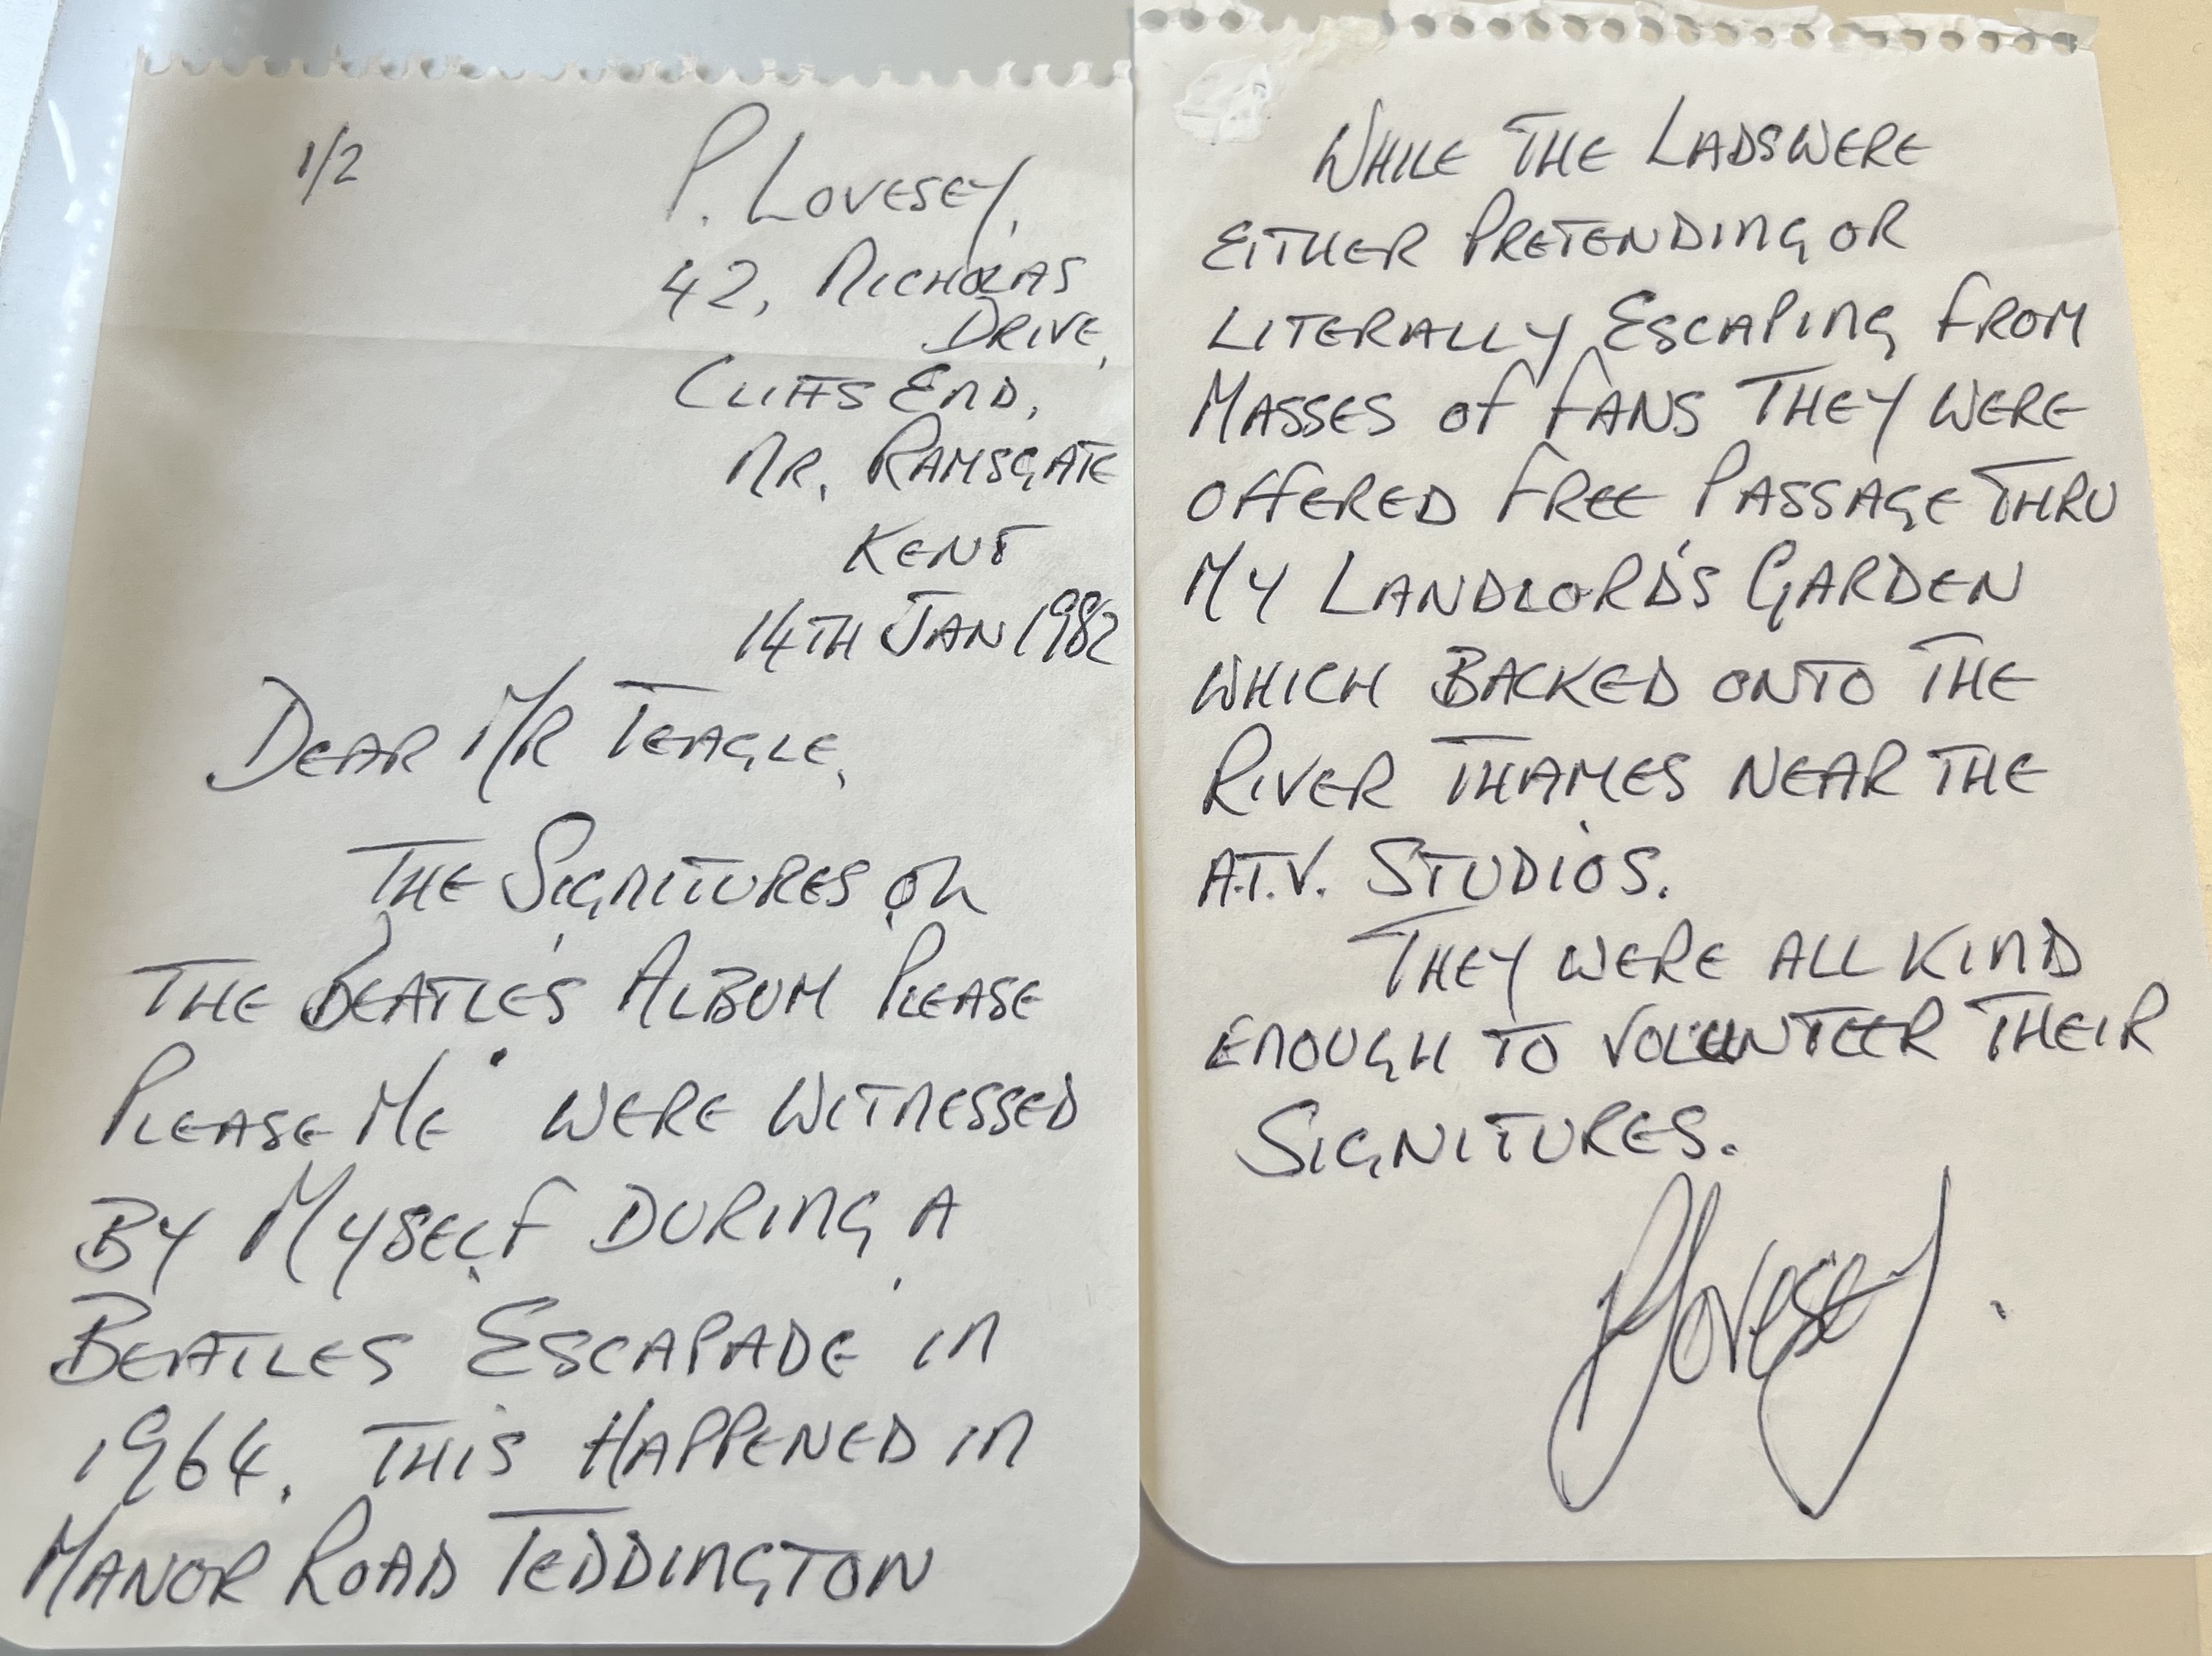 1/2
P. LOVESEY,
42, NICHOLAS
DRIVE,
CLIFFS END,
NR. RAMSGATE
KENT
14TH JAN 1982
DEAR MR TEAGLE,
THE SIGNITURES ON
THE BEATLE'S ALBUM PLEASE
PLEASE ME" WERE WITNESSED
BY MYSELF DURING A
BEATLES ESCAPADE IN
1964. THIS HAPPENED IN
MANOR ROAD TEDDINGTON
WHILE THE LADS WERE
EITHER PRETENDING OR
LITERALLY ESCAPING FROM
MASSES OF FANS THEY WERE
OFFERED FREE PASSAGE THRU
MY LANDLORD'S GARDEN
WHICH BACKED ONTO THE
RIVER THAMES NEAR THE
A.T.V. STUDIOS.
THEY WERE ALL KIND
ENOUGH TO VOLUNTEER THEIR
SIGNITURES.
P Lovesey.